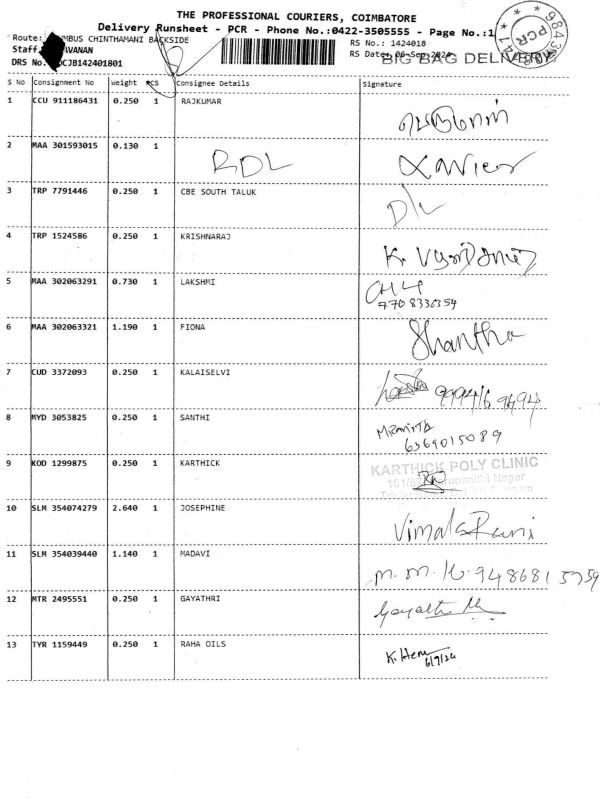 THE PROFESSIONAL COURIERS, COIMBATORE
Delivery Runsheet - PCR - Phone No.:0422-3505555 - Page No.:1
Route: MBUS CHINTHAMANI BACKSIDE
RS No.: 1424018
Staff AVANAN
RS Date: 06-Sep-2024
BIG BAG DELIVERY
DRS No. DCJB142401801
PCR
S No Consignment No Weight PCS Consignee Details Signature
1 CCU 911186431 0.250 1 RAJKUMAR பெருமாள்
2 MAA 301593015 0.130 1 RDL Xavier
3 TRP 7791446 0.250 1 CBE SOUTH TALUK D/L
4 TRP 1524586 0.250 1 KRISHNARAJ K.
5 MAA 302063291 0.730 1 LAKSHMI
7708336354
6 MAA 302063321 1.190 1 FIONA Shantha
7 CUD 3372093 0.250 1 KALAISELVI 9994169494
8 MYD 3053825 0.250 1 SANTHI
6369015089
9 KOD 1299875 0.250 1 KARTHICK KARTHICK POLY CLINIC
Nagar
10 SLM 354074279 2.640 1 JOSEPHINE Vimala Rani
11 SLM 354039440 1.140 1 MADAVI M.M.K. 9486815759
12 MTR 2495551 0.250 1 GAYATHRI
13 TYR 1159449 0.250 1 RAHA OILS K. Hema
6/9/24